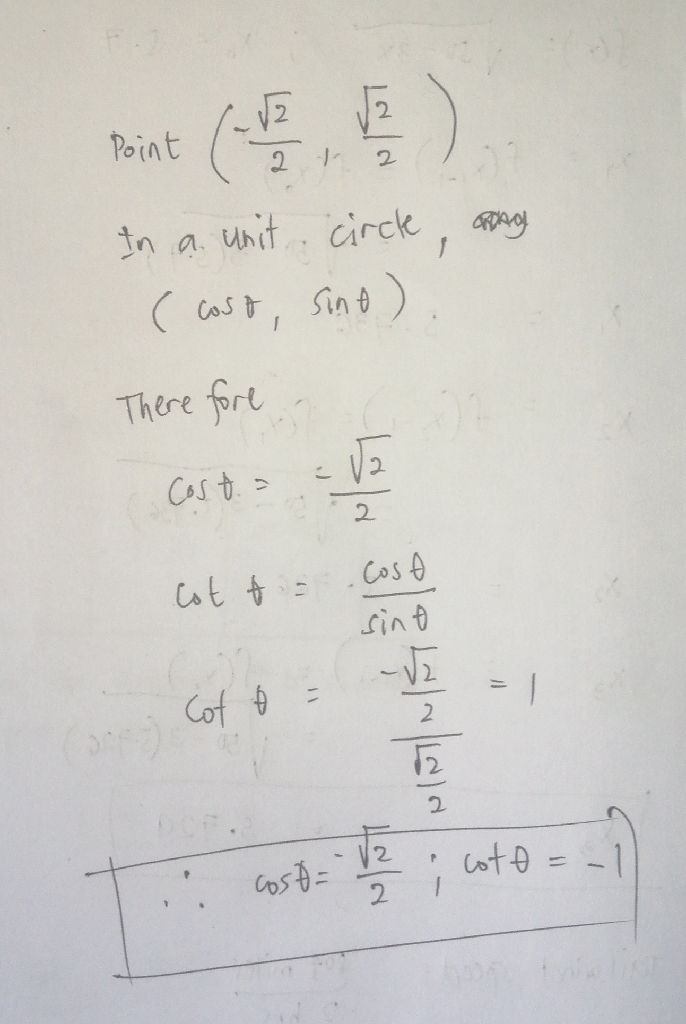 Point (-√2/2, √2/2)
In a unit circle,
(cos θ, sin θ)
Therefore
cos θ = -√2/2
cot θ = cos θ/sin θ
cot θ = (-√2/2)/(√2/2) = 1
∴ cos θ = -√2/2 ; cot θ = -1